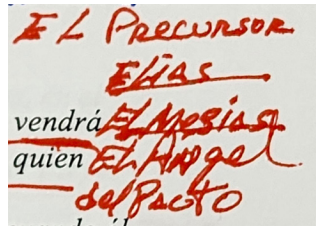 EL PRECURSOR
ELIAS
vendrá EL Mesias
quien EL Angel
del Pacto